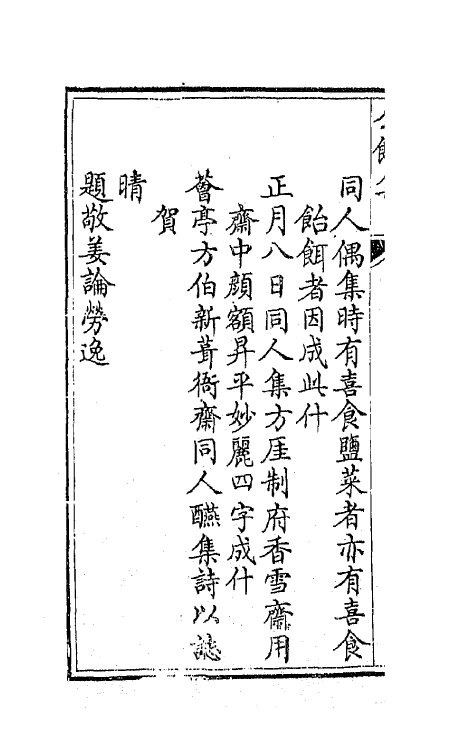 同人偶集時有喜食鹽菜者亦有喜食
飴餌者因成此什
正月八日同人集方厓制府香雪齋用
齋中顔額昇平妙麗四字成什
薈亭方伯新葺衙齋同人醼集詩以誌
賀
晴
題敬姜論勞逸